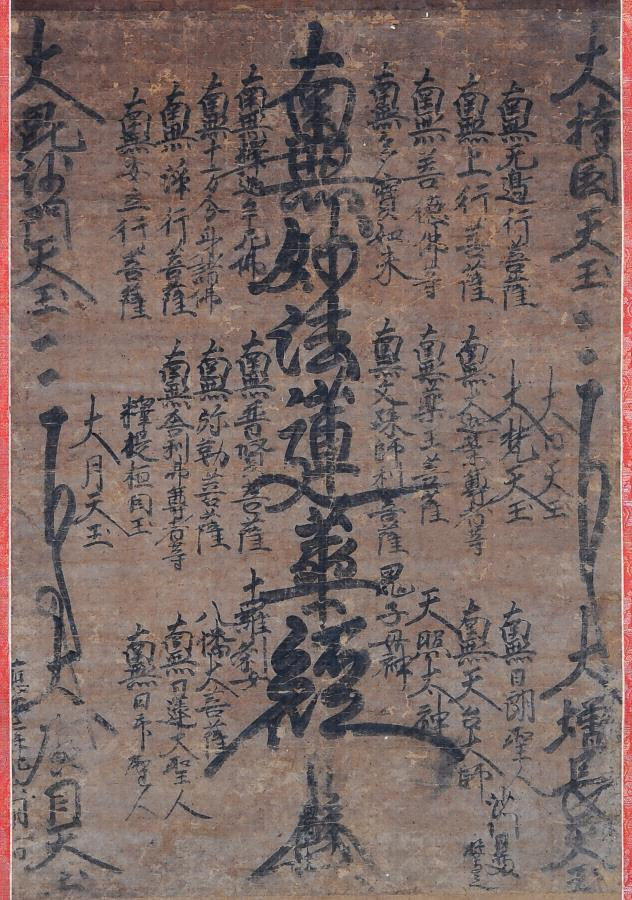 大持国天玉
南無无邊行菩薩
南無上行菩薩
南無善徳仏等
南無多寳如来
南無妙法蓮華経
南無釋迦牟尼佛
南無十方分身諸佛
南無淨行菩薩
南無安立行菩薩
大毗沙門天玉
大日天玉
大梵天玉
南無大迦葉尊者等
南無藥王菩薩
南無文殊師利菩薩
南無普賢菩薩
南無弥勒菩薩
南無舎利弗尊者等
釋提桓因玉
大月天玉
大増長天玉
南無日朗聖人
南無天台大師
天照太神
鬼子母神
十羅刹女
八幡大菩薩
南無日蓮大聖人
南無日印聖人
大廣目天玉
沙門